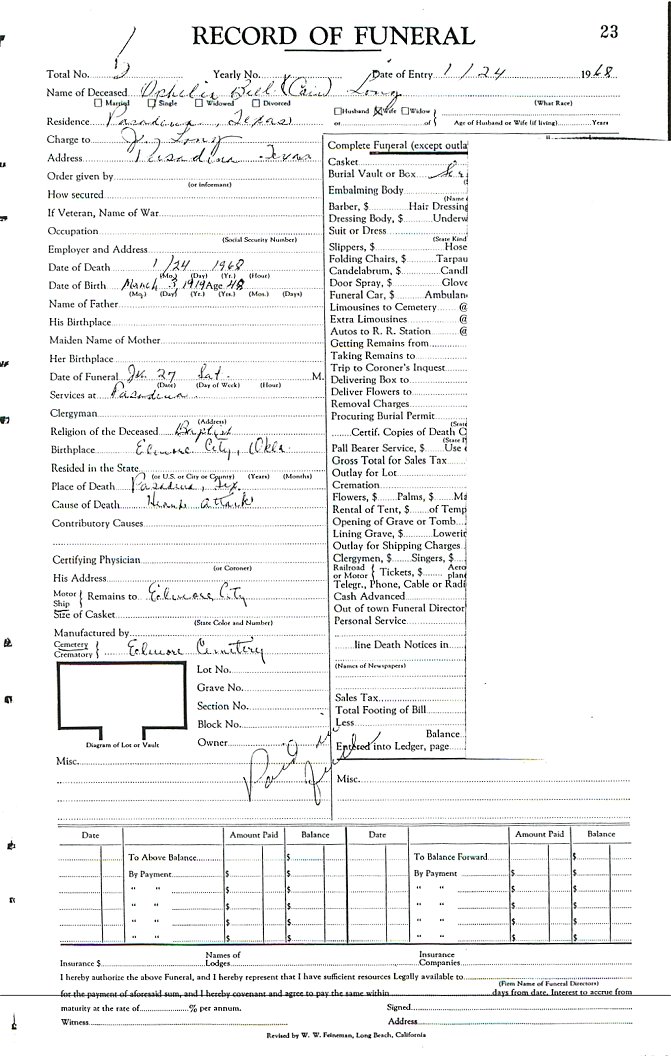 RECORD OF FUNERAL
23
Total No. Yearly No. Date of Entry 1/24 1968
Name of Deceased Ophelia Bell (Cain) Long
Married Single Widowed Divorced Husband Wife Widow (What Race)
Residence Pasadena, Texas or of Age of Husband or Wife (if living) Years
Charge to J. Long
Address Pasadena Texas
Order given by
(or informant)
How secured
If Veteran, Name of War
Occupation
(Social Security Number)
Employer and Address
Date of Death 1/24 1968
(Mo.) (Day) (Yr.) (Hour)
Date of Birth March 3, 1919 Age 48
(Mo.) (Day) (Yr.) (Yrs.) (Mos.) (Days)
Name of Father
His Birthplace
Maiden Name of Mother
Her Birthplace
Date of Funeral Ja. 27 Sat. M.
(Date) (Day of Week) (Hour)
Services at Pasadena
Clergyman
(Address)
Religion of the Deceased Baptist
Birthplace Elmore City, Okla.
Resided in the State
(or U.S. or City or County) (Years) (Months)
Place of Death Pasadena, Tex.
Cause of Death Heart Attack
Contributory Causes
Certifying Physician
(or Coroner)
His Address
Motor
Ship
Remains to Elmore City
Size of Casket
(State Color and Number)
Manufactured by
Cemetery
Crematory
Elmore Cemetery
Lot No.
Grave No.
Section No.
Block No.
Owner
Diagram of Lot or Vault
Misc. Paid
Complete Funeral (except outla
Casket
Burial Vault or Box
Embalming Body
(Name
Barber, $ Hair Dressing
Dressing Body, $ Underw
Suit or Dress
(State Kind
Slippers, $ Hose
Folding Chairs, $ Tarpau
Candelabrum, $ Candl
Door Spray, $ Glove
Funeral Car, $ Ambulan
Limousines to Cemetery @
Extra Limousines @
Autos to R. R. Station @
Getting Remains from
Taking Remains to
Trip to Coroner's Inquest
Delivering Box to
Deliver Flowers to
Removal Charges
Procuring Burial Permit
(State
Certif. Copies of Death C
(State P
Pall Bearer Service, $ Use
Gross Total for Sales Tax
Outlay for Lot
Cremation
Flowers, $ Palms, $ Ma
Rental of Tent, $ of Temp
Opening of Grave or Tomb
Lining Grave, $ Lowerin
Outlay for Shipping Charges
Clergymen, $ Singers, $
Railroad
or Motor
Tickets, $
Aero
plane
Telegr., Phone, Cable or Radi
Cash Advanced
Out of town Funeral Director
Personal Service
line Death Notices in
(Names of Newspapers)
Sales Tax
Total Footing of Bill
Less
Balance
Entered into Ledger, page
Misc.
Date Amount Paid Balance Date Amount Paid Balance
To Above Balance $ To Balance Forward $
By Payment $ $ By Payment $ $
" " $ $ " " $ $
" " $ $ " " $ $
" " $ $ " " $ $
" " $ $ " " $ $
Insurance $ Names of Lodges Insurance Companies
I hereby authorize the above Funeral, and I hereby represent that I have sufficient resources Legally available to
(Firm Name of Funeral Directors)
for the payment of aforesaid sum, and i hereby covenant and agree to pay the same within days from date. Interest to accrue from
maturity at the rate of % per annum. Signed
Witness Address
Revised by W. W. Feineman, Long Beach, California